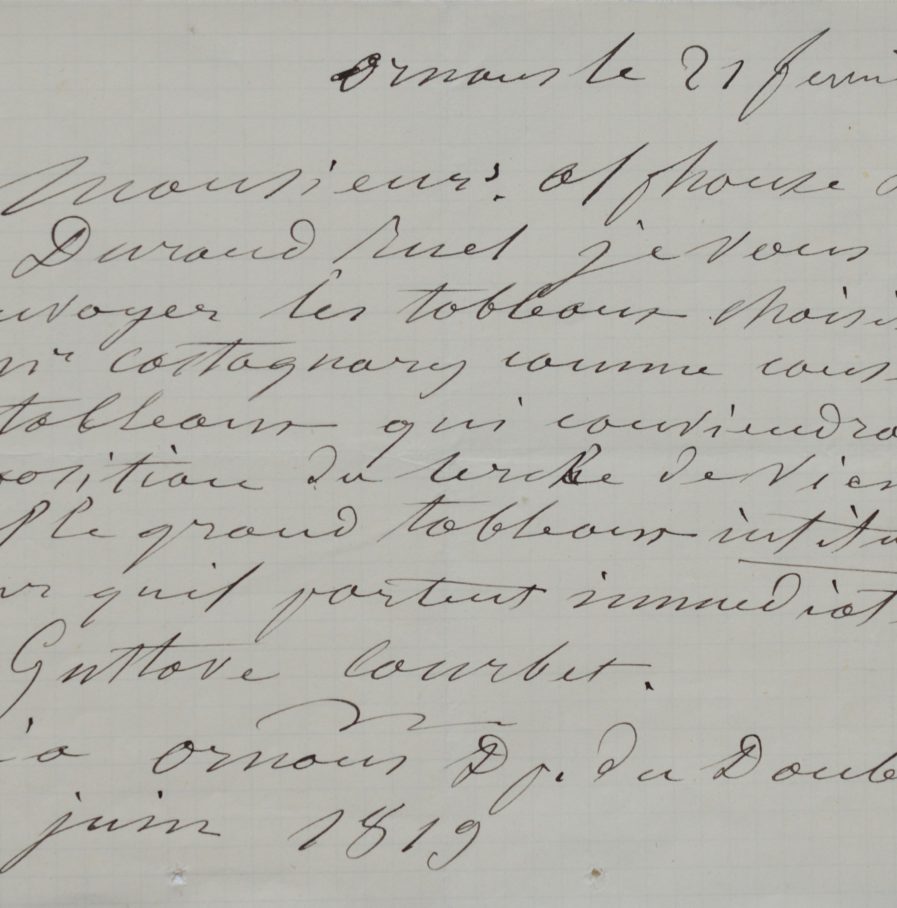 Ornans le 21 fevri
Monsieurs. Alphonse
Durand Ruel je vous
nvoyer les tableaux choisi
Mr Castagnary comme cons
tableaux qui conviendra
position du cercle de Vien
le grand tableaux intitu
quil partent immediat
Gusttave Courbet.
a Ornans Dp. du Doub
juin 1819